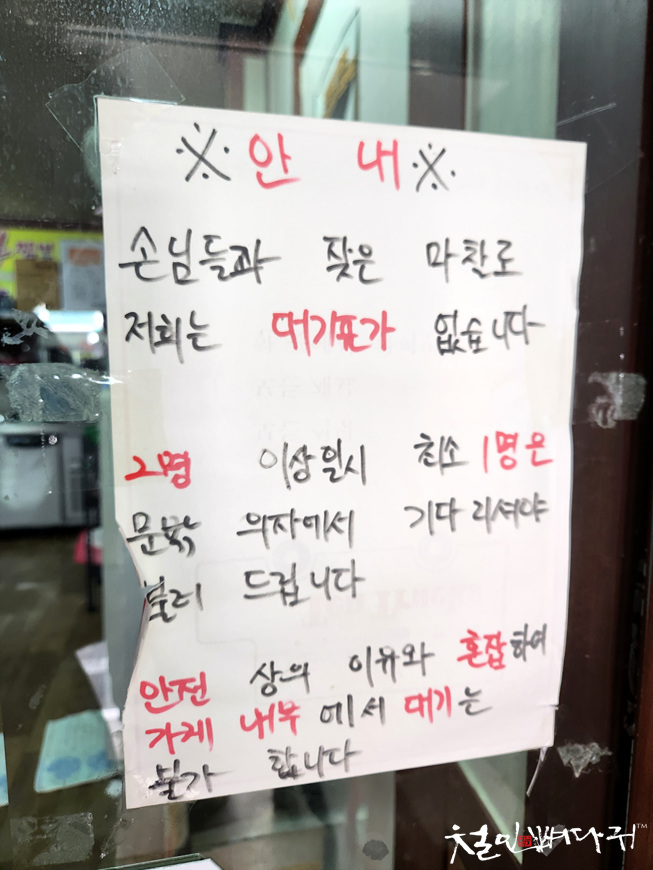 ※안 내※
손님들과 잦은 마찰로
저희는 대기표가 없습니다
2명 이상일시 최소 1명은
문밖 의자에서 기다리셔야
불러 드립니다
안전 상의 이유와 혼잡하여
가게 내부에서 대기는
불가 합니다
철인뼈다귀™